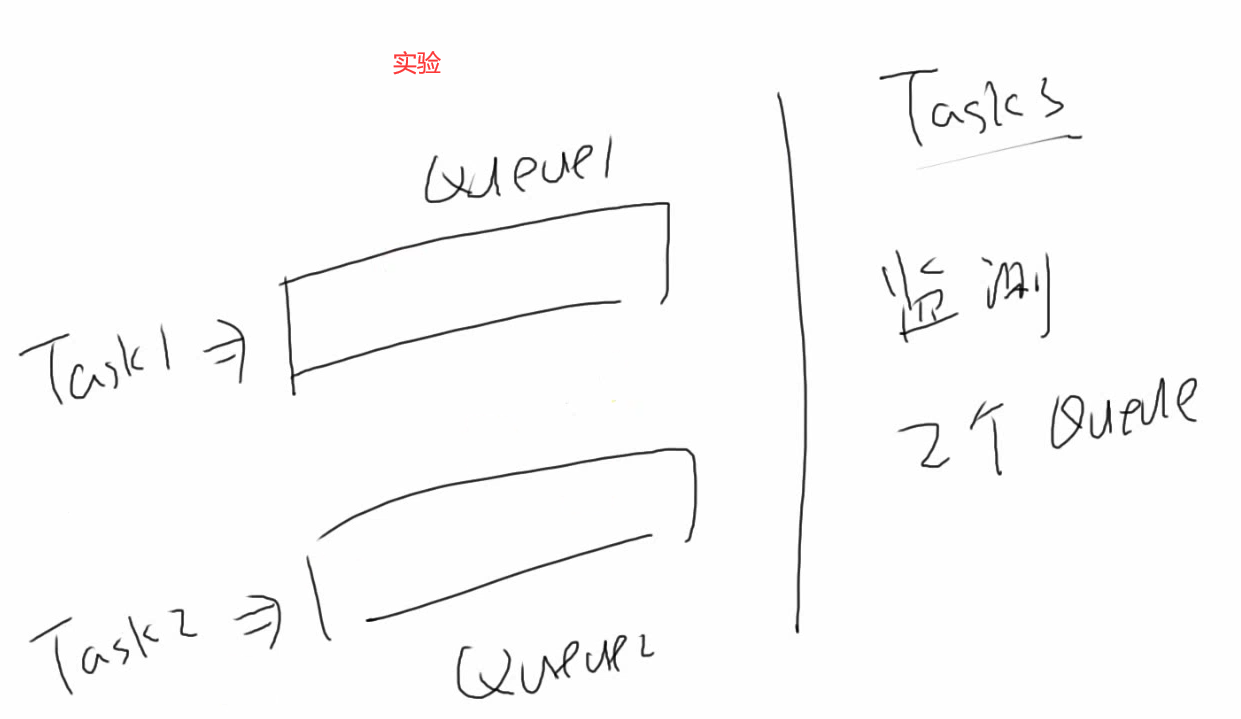 实验
Queue1
Task1 ⇒
Task2 ⇒
Queue2
Task3
监测
2个 Queue